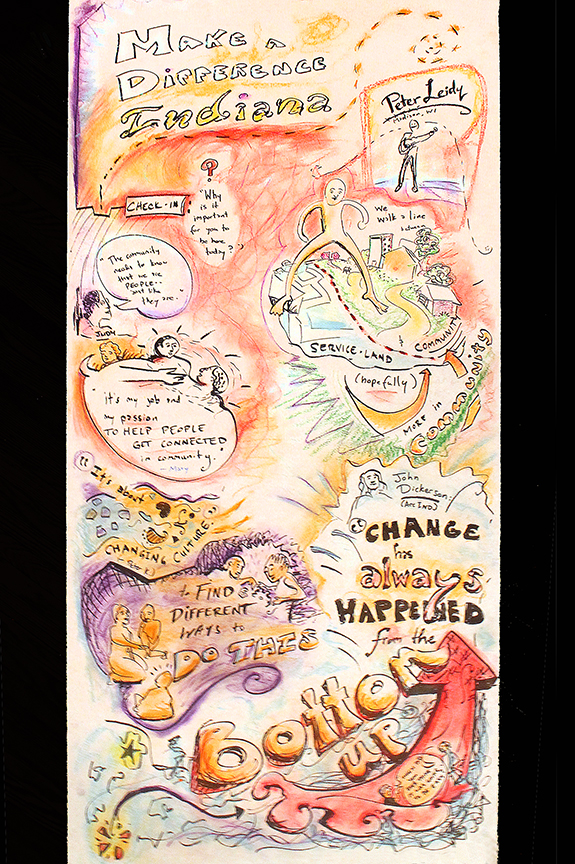 MAKE A
DIFFERENCE
Indiana
Peter Leidy
Madison, WI
CHECK-IN
?
"Why
is it
important
for you to
be here
today?"
We
walk a line
between
SERVICE-LAND
& COMMUNITY
(hopefully)
MORE in
COMMUNITY
The community
needs to know
that we are
PEOPLE-
just like
they are.
JUDY
It's my job and
my passion
TO HELP PEOPLE
GET CONNECTED
in community."
- Mary
"It's about
CHANGING CULTURE
to FIND
DIFFERENT
WAYS to
DO THIS
John
Dickerson:
(Arc IND)
CHANGE
has
always
HAPPENED
from the
bottom
up